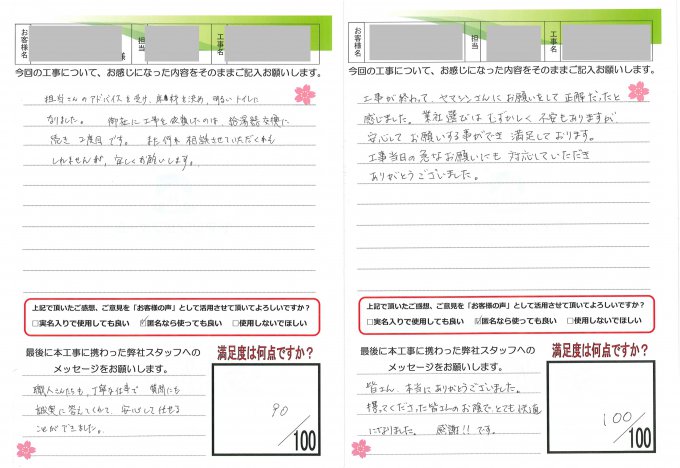 お客様名
様
担当
工事名
今回の工事について、お感じになった内容をそのままご記入お願いします。
担当さんのアドバイスを受け、床材を決め、明るいトイレに
なりました。 御社に工事を依頼したのは、給湯器交換に
続き2度目です。 また何か相談させていただくかも
しれませんが、宜しくお願いします。
上記で頂いたご感想、ご意見を「お客様の声」として活用させて頂いてよろしいですか?
□実名入りで使用しても良い ☑匿名なら使っても良い □使用しないでほしい
最後に本工事に携わった弊社スタッフへの
メッセージをお願いします。
職人さんたちも、丁寧な仕事で 質問にも
誠実に答えてくれて、安心して任せる
ことができました。
満足度は何点ですか?
90
/100
お客様名
担当
工事名
今回の工事について、お感じになった内容をそのままご記入お願いします。
工事が終わって、ヤマシンさんにお願いをして正解だったと
感じました。業社選びはむずかしく不安もありますが
安心してお願いする事ができ 満足しております。
工事当日の急なお願いにも 対応していただき
ありがとうございました。
上記で頂いたご感想、ご意見を「お客様の声」として活用させて頂いてよろしいですか?
□実名入りで使用しても良い ☑匿名なら使っても良い □使用しないでほしい
最後に本工事に携わった弊社スタッフへの
メッセージをお願いします。
皆さん、本当にありがとうございました。
携ってくださった皆さんのお陰で、とても快適
になりました。 感謝!!です。
満足度は何点ですか?
100
/100